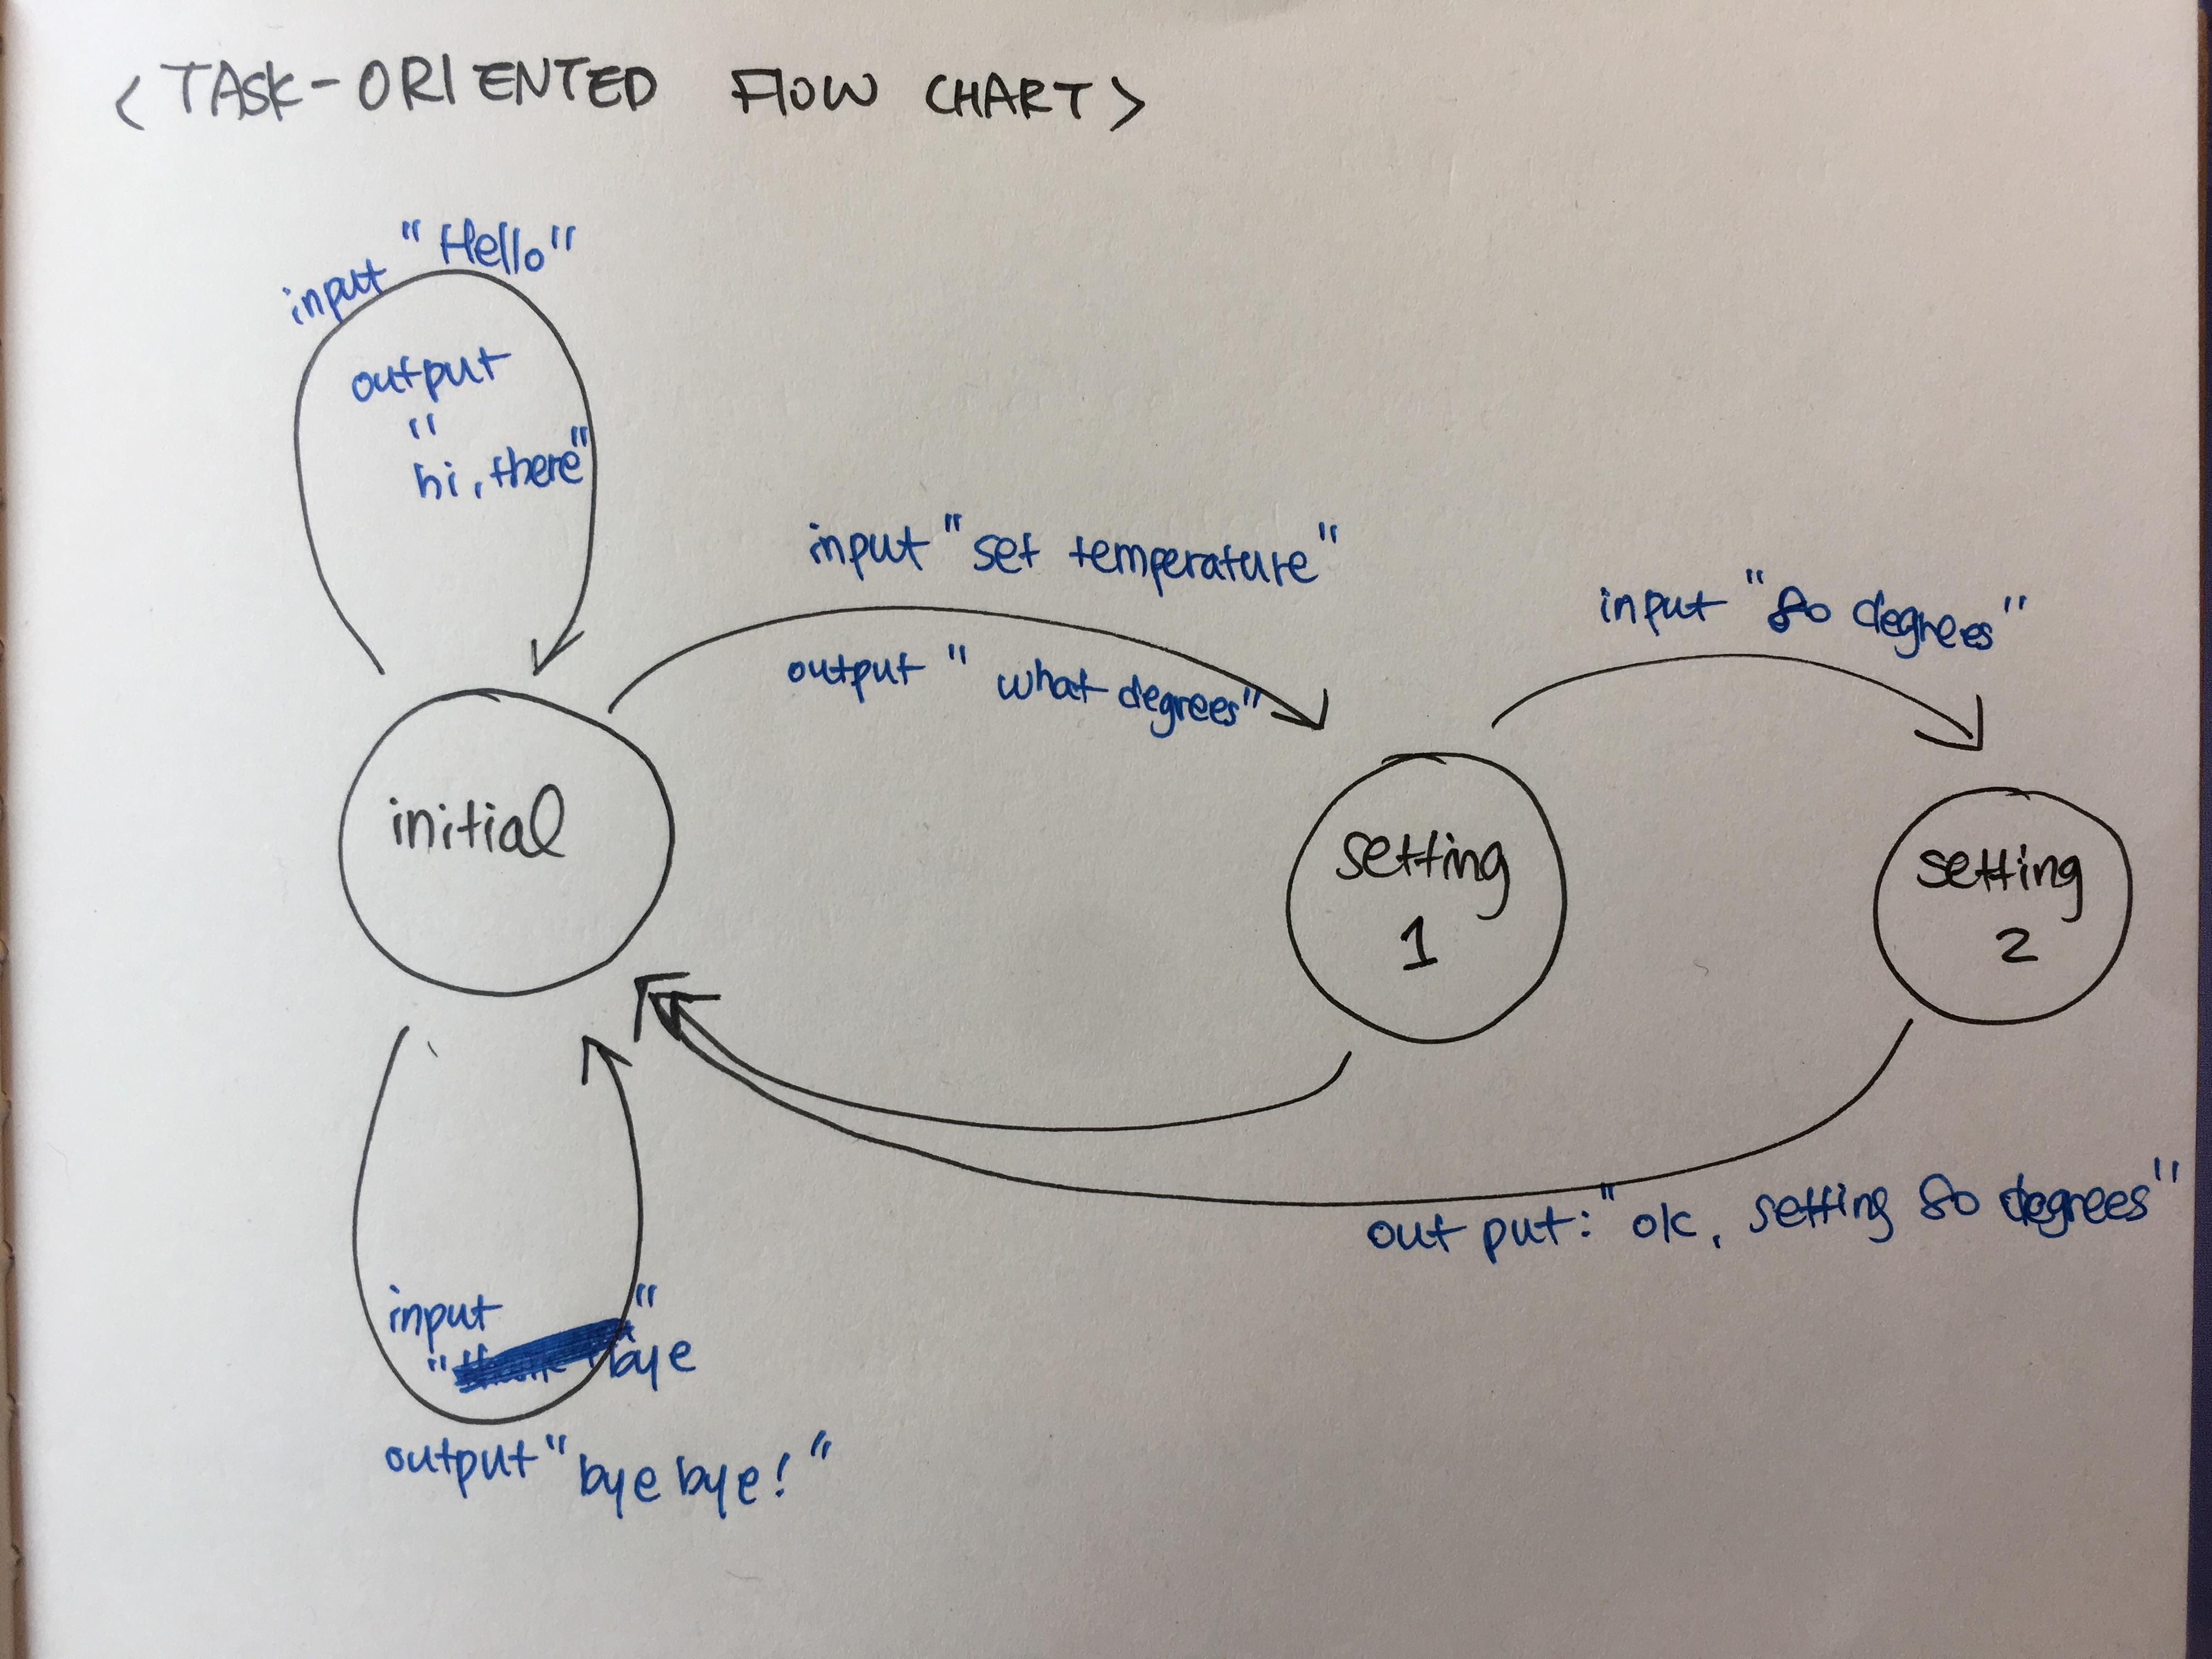 < TASK-ORIENTED FLOW CHART >
input "Hello"
output
"
hi, there"
input "set temperature"
output " what degrees"
input "80 degrees"
initial
setting
1
setting
2
output: "ok, setting 80 degrees"
input "
" bye
output "bye bye! "